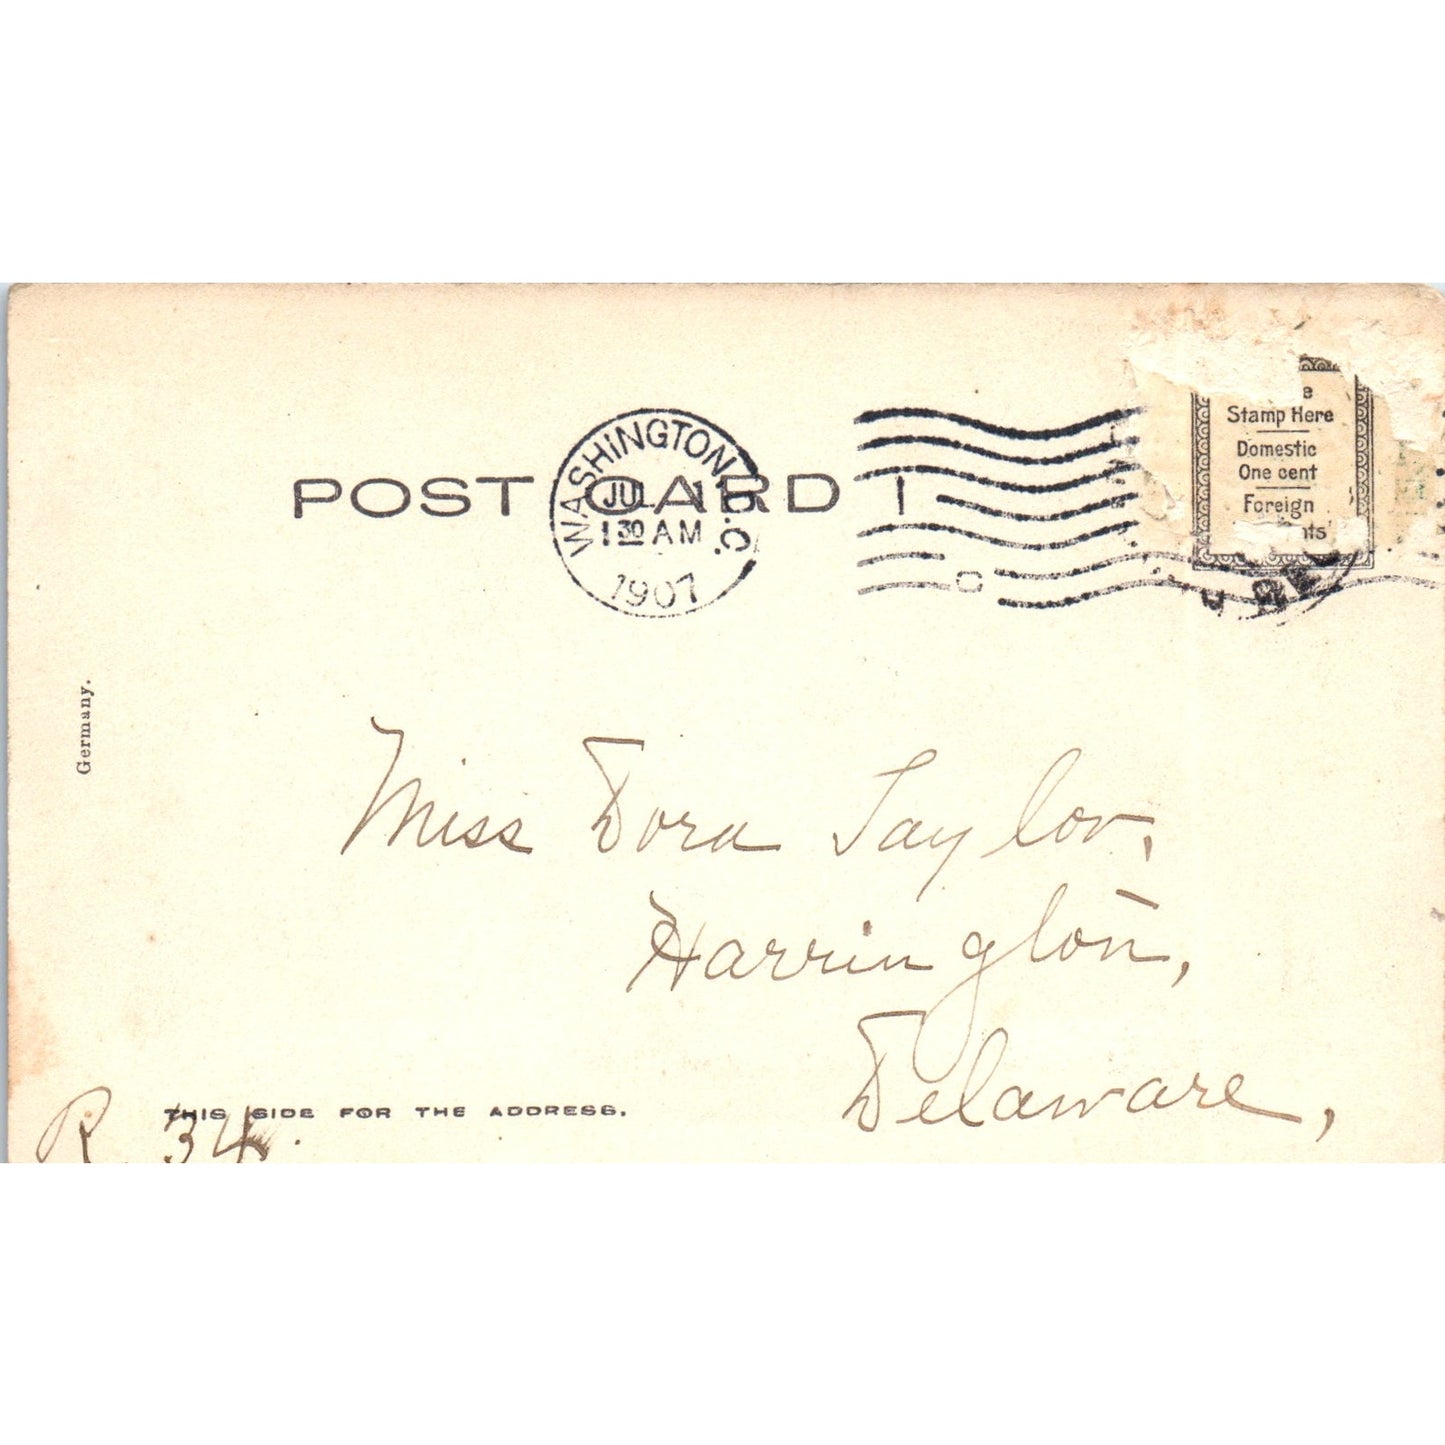 POST CARD
WASHINGTON D.C.
JUL 1
1 30 AM
1907
1
C
Stamp Here
Domestic
One cent
Foreign
Germany.
Miss Dora Taylor,
Harrington,
Delaware,
THIS SIDE FOR THE ADDRESS.
R. 34.